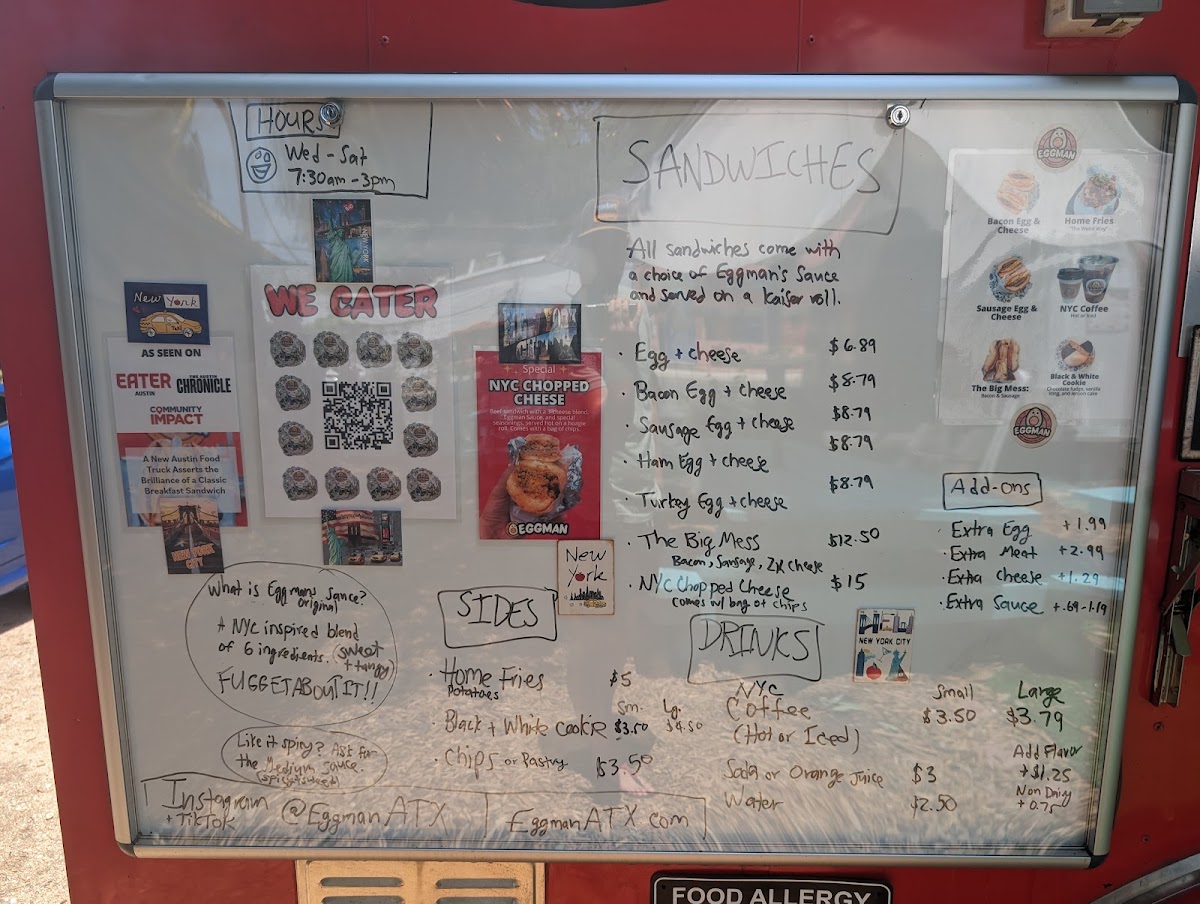 HOURS
Wed - Sat
7:30am - 3pm
NEW YORK
New York
TAXI
AS SEEN ON
EATER
AUSTIN
THE AUSTIN
CHRONICLE
COMMUNITY
IMPACT
A New Austin Food
Truck Asserts the
Brilliance of a Classic
Breakfast Sandwich
NEW YORK
CITY
WE CATER
NEW YORK
CITY
Special
NYC CHOPPED
CHEESE
Beef sandwich with a 3 cheese blend,
Eggman Sauce, and special
seasonings, served hot on a hoagie
roll. Comes with a bag of chips.
EGGMAN
New
York
SANDWICHES
All sandwiches come with
a choice of Eggman's Sauce
and served on a kaiser roll.
· Egg + cheese $6.89
· Bacon Egg + cheese $8.79
· Sausage Egg + cheese $8.79
· Ham Egg + cheese $8.79
· Turkey Egg + cheese $8.79
· The Big Mess $12.50
Bacon, Sausage, 2x cheese
· NYC Chopped Cheese $15
comes w/ bag of chips
EGGMAN
Bacon Egg &
Cheese
Home Fries
Sausage Egg &
Cheese
NYC Coffee
Hot or Iced
The Big Mess:
Bacon & Sausage
Black & White
Cookie
EGGMAN
Add-ons
· Extra Egg +1.99
· Extra Meat +2.99
· Extra cheese +1.29
· Extra Sauce +.69-1.19
What is Eggmans Sauce?
original
A NYC inspired blend
of 6 ingredients. (sweet
+ tangy)
FUGGETABOUTIT!!
Like it spicy? Ask for
the Medium sauce.
(spicy+sweet)
SIDES
· Home Fries $5
Potatoes
Sm. Lg.
· Black + White cookie $3.50 $4.50
· Chips or Pastry $3.50
DRINKS
NEW
NEW YORK CITY
Small Large
NYC
Coffee $3.50 $3.79
(Hot or Iced)
Add Flavor
+$1.25
Non Dairy
+0.75
Soda or Orange Juice $3
Water $2.50
Instagram
+ TikTok
@EggmanATX
EggmanATX.com
FOOD ALLERGY